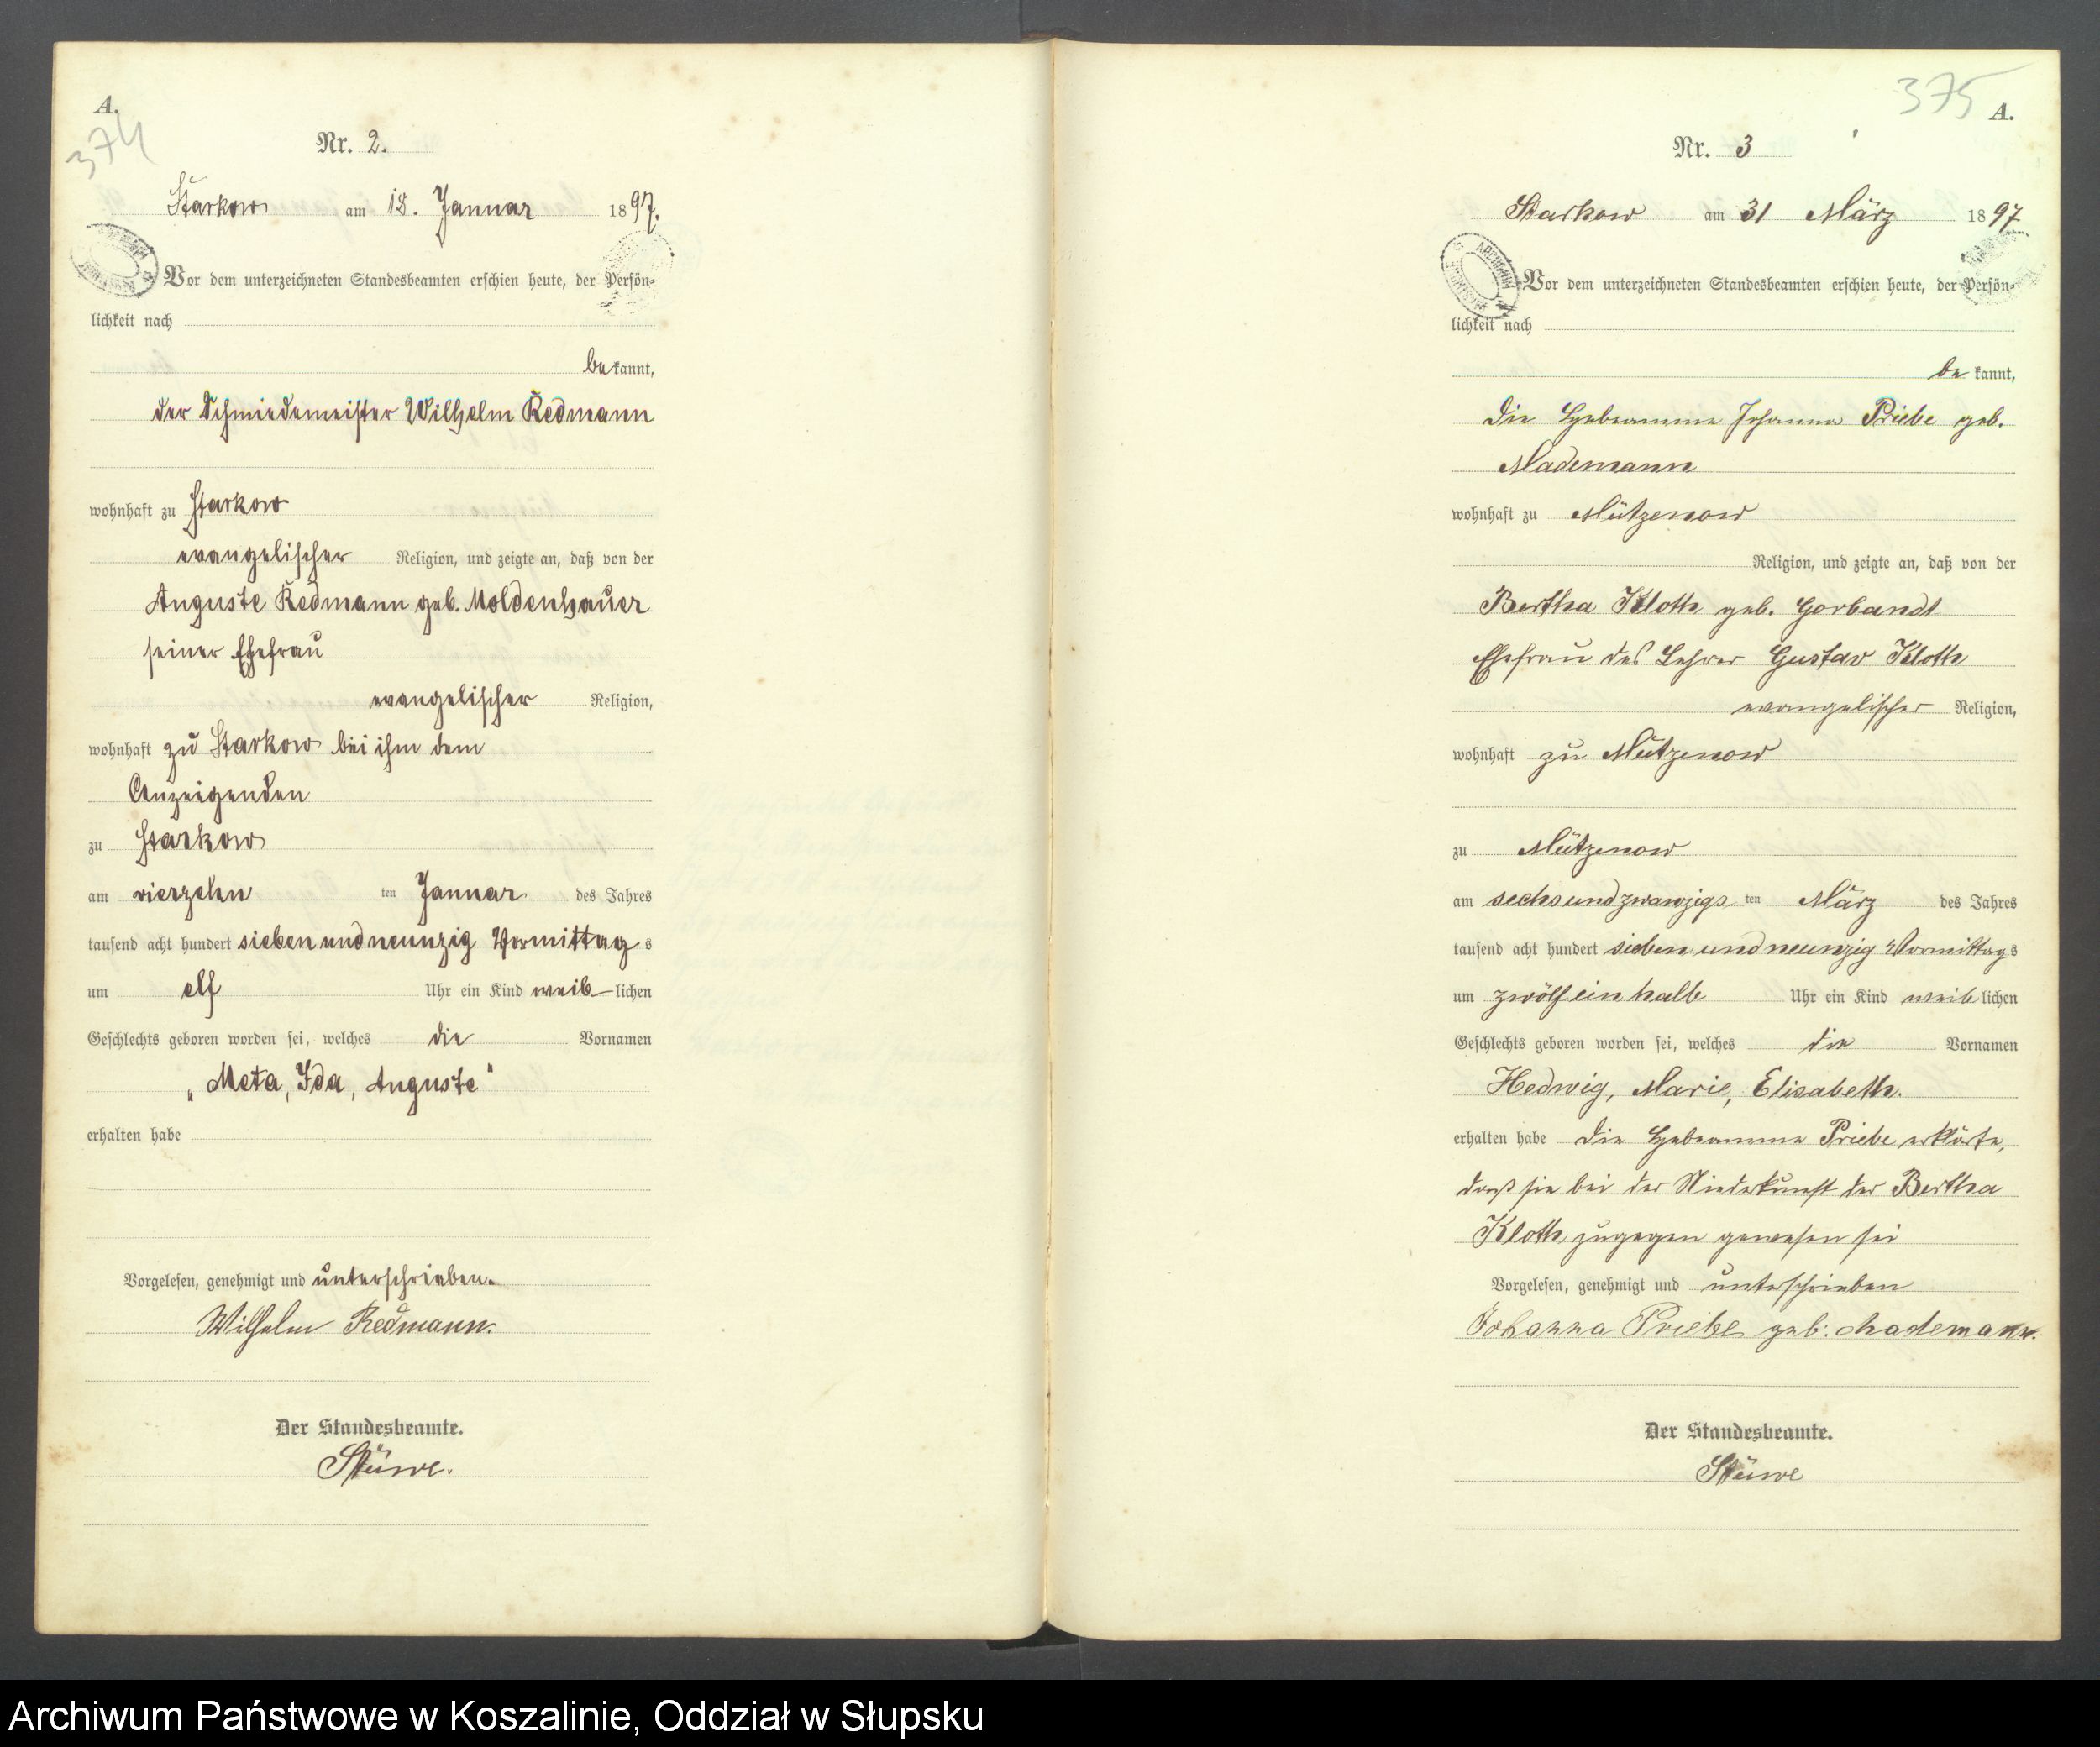 A.
374
Nr. 2.
Starkow am 18. Januar 1897.
Vor dem unterzeichneten Standesbeamten erschien heute, der Persön-
lichkeit nach
bekannt,
der Schmiedemeister Wilhelm Redmann
wohnhaft zu Starkow
evangelischer Religion, und zeigte an, daß von der
Auguste Redmann geb. Moldenhauer
seiner Ehefrau
evangelischer Religion,
wohnhaft zu Starkow bei ihm dem
Anzeigenden
zu Starkow
am vierzehn ten Januar des Jahres
tausend acht hundert siebenundneunzig Vormittag s
um elf Uhr ein Kind weib-lichen
Geschlechts geboren worden sei, welches die Vornamen
„Meta, Ida, Auguste"
erhalten habe
Vorgelesen, genehmigt und unterschrieben.
Wilhelm Redmann.
Der Standesbeamte.
Stüwe.
375
A.
Nr. 3
Starkow am 31 März 1897
Vor dem unterzeichneten Standesbeamten erschien heute, der Persön-
lichkeit nach
be kannt,
die Hebeamme Johanna Priebe geb.
Mademann
wohnhaft zu Mützenow
Religion, und zeigte an, daß von der
Bertha Kloth geb. Gorbandt
Ehefrau des Lehrer Gustav Kloth
evangelischer Religion,
wohnhaft zu Mützenow
zu Mützenow
am sechsundzwanzigs ten März des Jahres
tausend acht hundert sieben und neunzig Vormittags
um zwölf ein halb Uhr ein Kind weib lichen
Geschlechts geboren worden sei, welches die Vornamen
Hedwig, Marie, Elisabeth.
erhalten habe die Hebeamme Priebe erklärte,
daß sie bei der Niederkunft der Bertha
Kloth zugegen gewesen sei
Vorgelesen, genehmigt und unterschrieben
Johanna Priebe geb: Mademann.
Der Standesbeamte.
Stüwe
Archiwum Państwowe w Koszalinie, Oddział w Słupsku